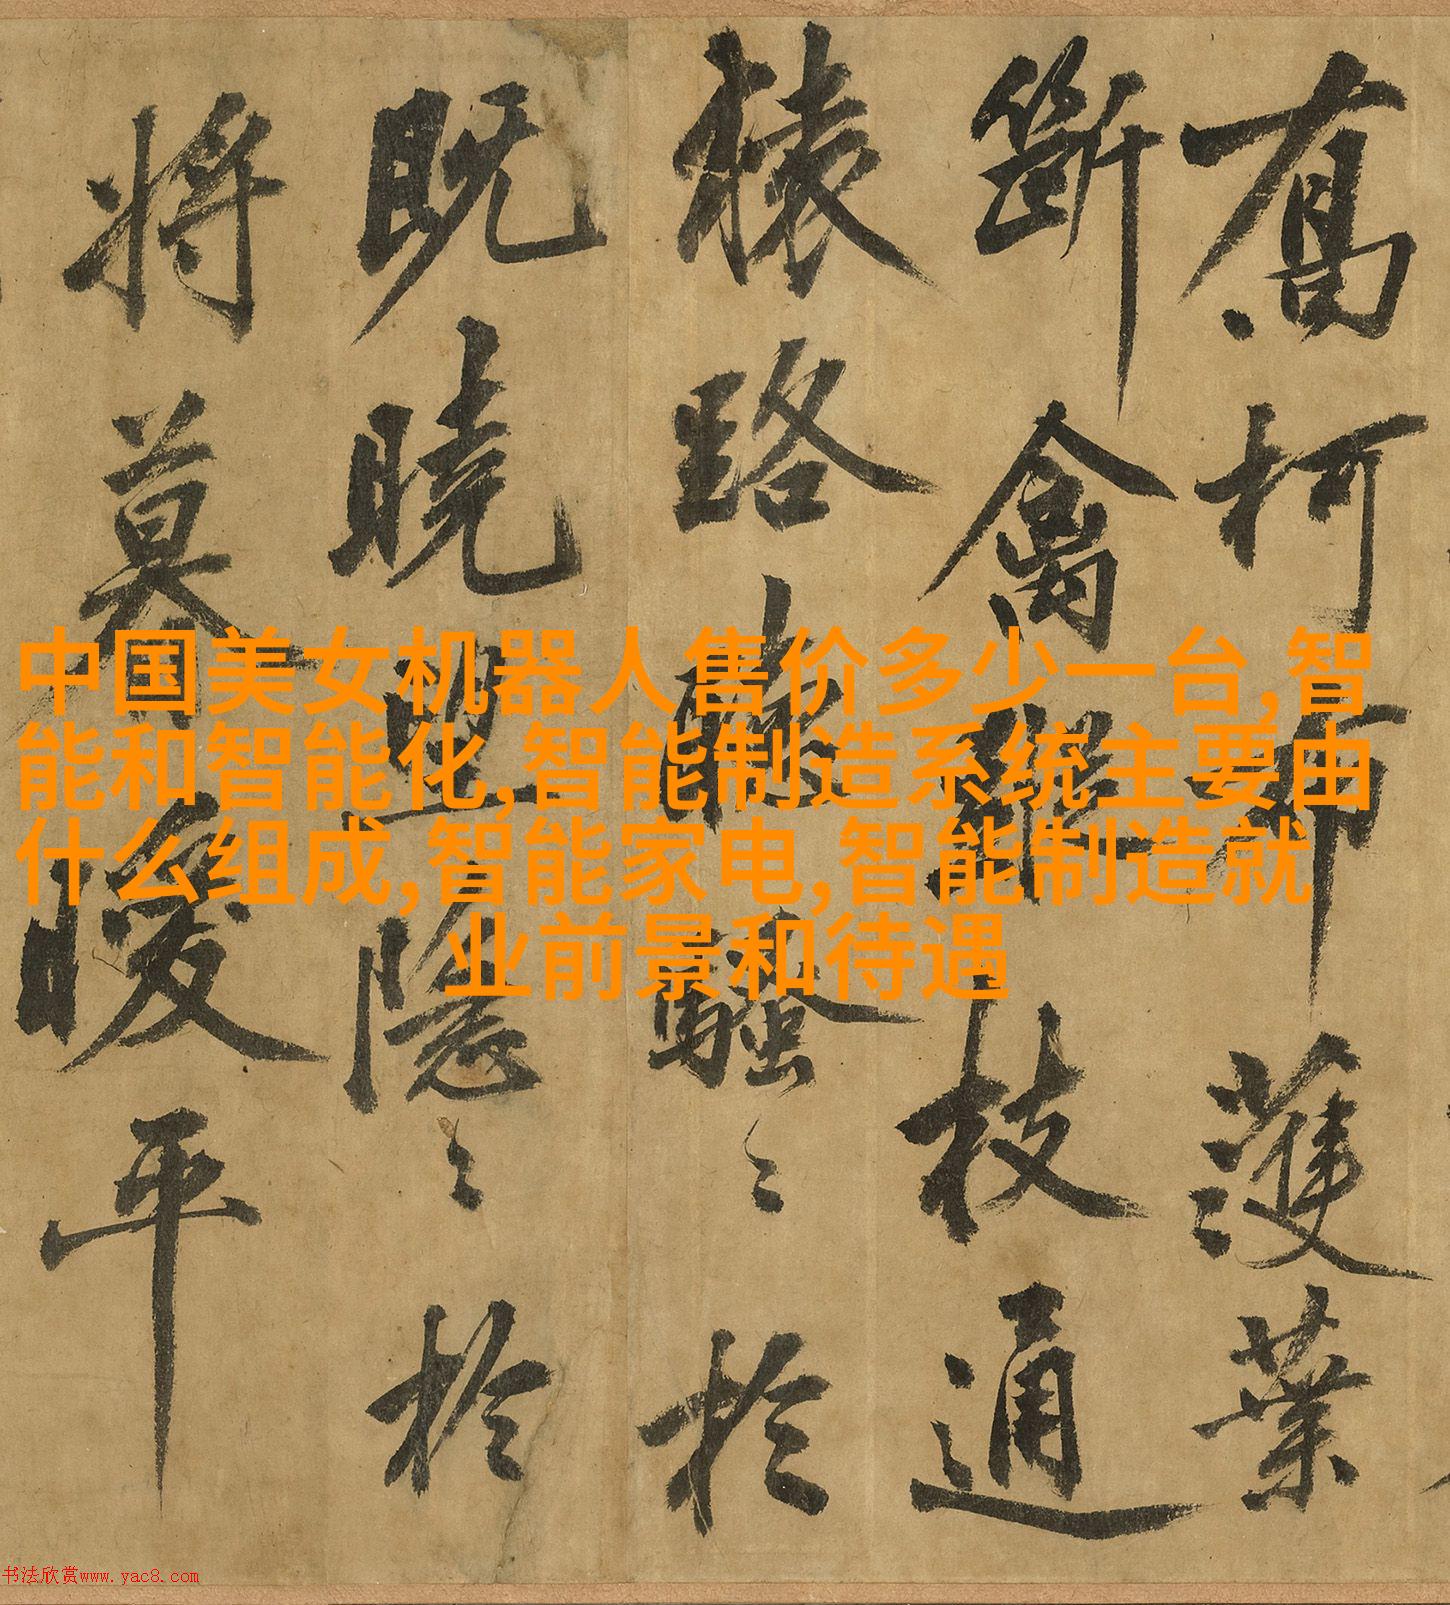 中国美女机器人售价多少一台,智
能和智能化,智能制造系统主要由
什么组成,智能家电,智能制造就
业前景和待遇
喬柯布護葉
斷禽枝通
猿路聽騷〻於
既曉望隱〻於
將暮暖平
书法欣赏www.yac8.com